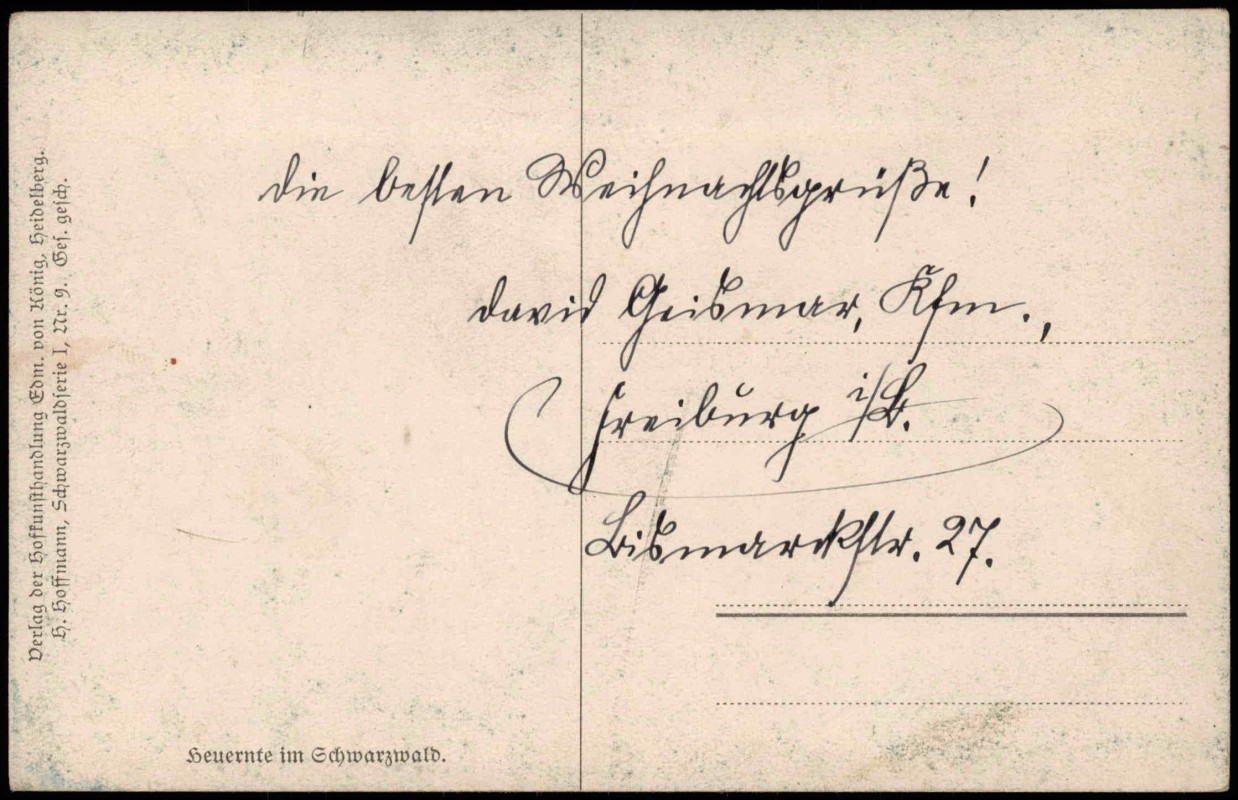 Die besten Weihnachtsgrüße!
David Geismar, Kfm.,
Freiburg i/B.
Bismarckstr. 27.
Verlag der Hofkunsthandlung Edm. von König, Heidelberg.
H. Hoffmann, Schwarzwaldserie I, Nr. 9. Ges. gesch.
Heuernte im Schwarzwald.